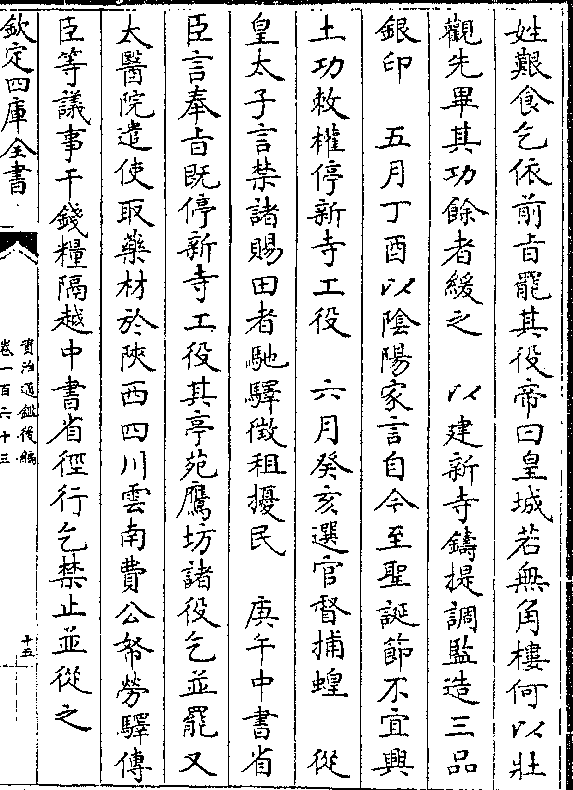 姓艱食乞依前㫖罷其役帝曰皇城若無角樓何以壯
觀先畢其功餘者緩之　以建新寺鑄提調監造三品
銀印　五月丁酉以陰陽家言自今至聖誕節不宜興
土功敕權停新寺工役　六月癸亥選官督捕蝗　從
皇太子言禁諸賜田者馳驛徵租擾民　庚午中書省
臣言奉㫖既停新寺工役其亭苑鷹坊諸役乞並罷又
太醫院遣使取藥材於陜西四川雲南費公帑勞驛傳
臣等議事干錢糧隔越中書省徑行乞禁止並從之
欽定四庫全書
資治通鑑後編
卷一百六十三
十五